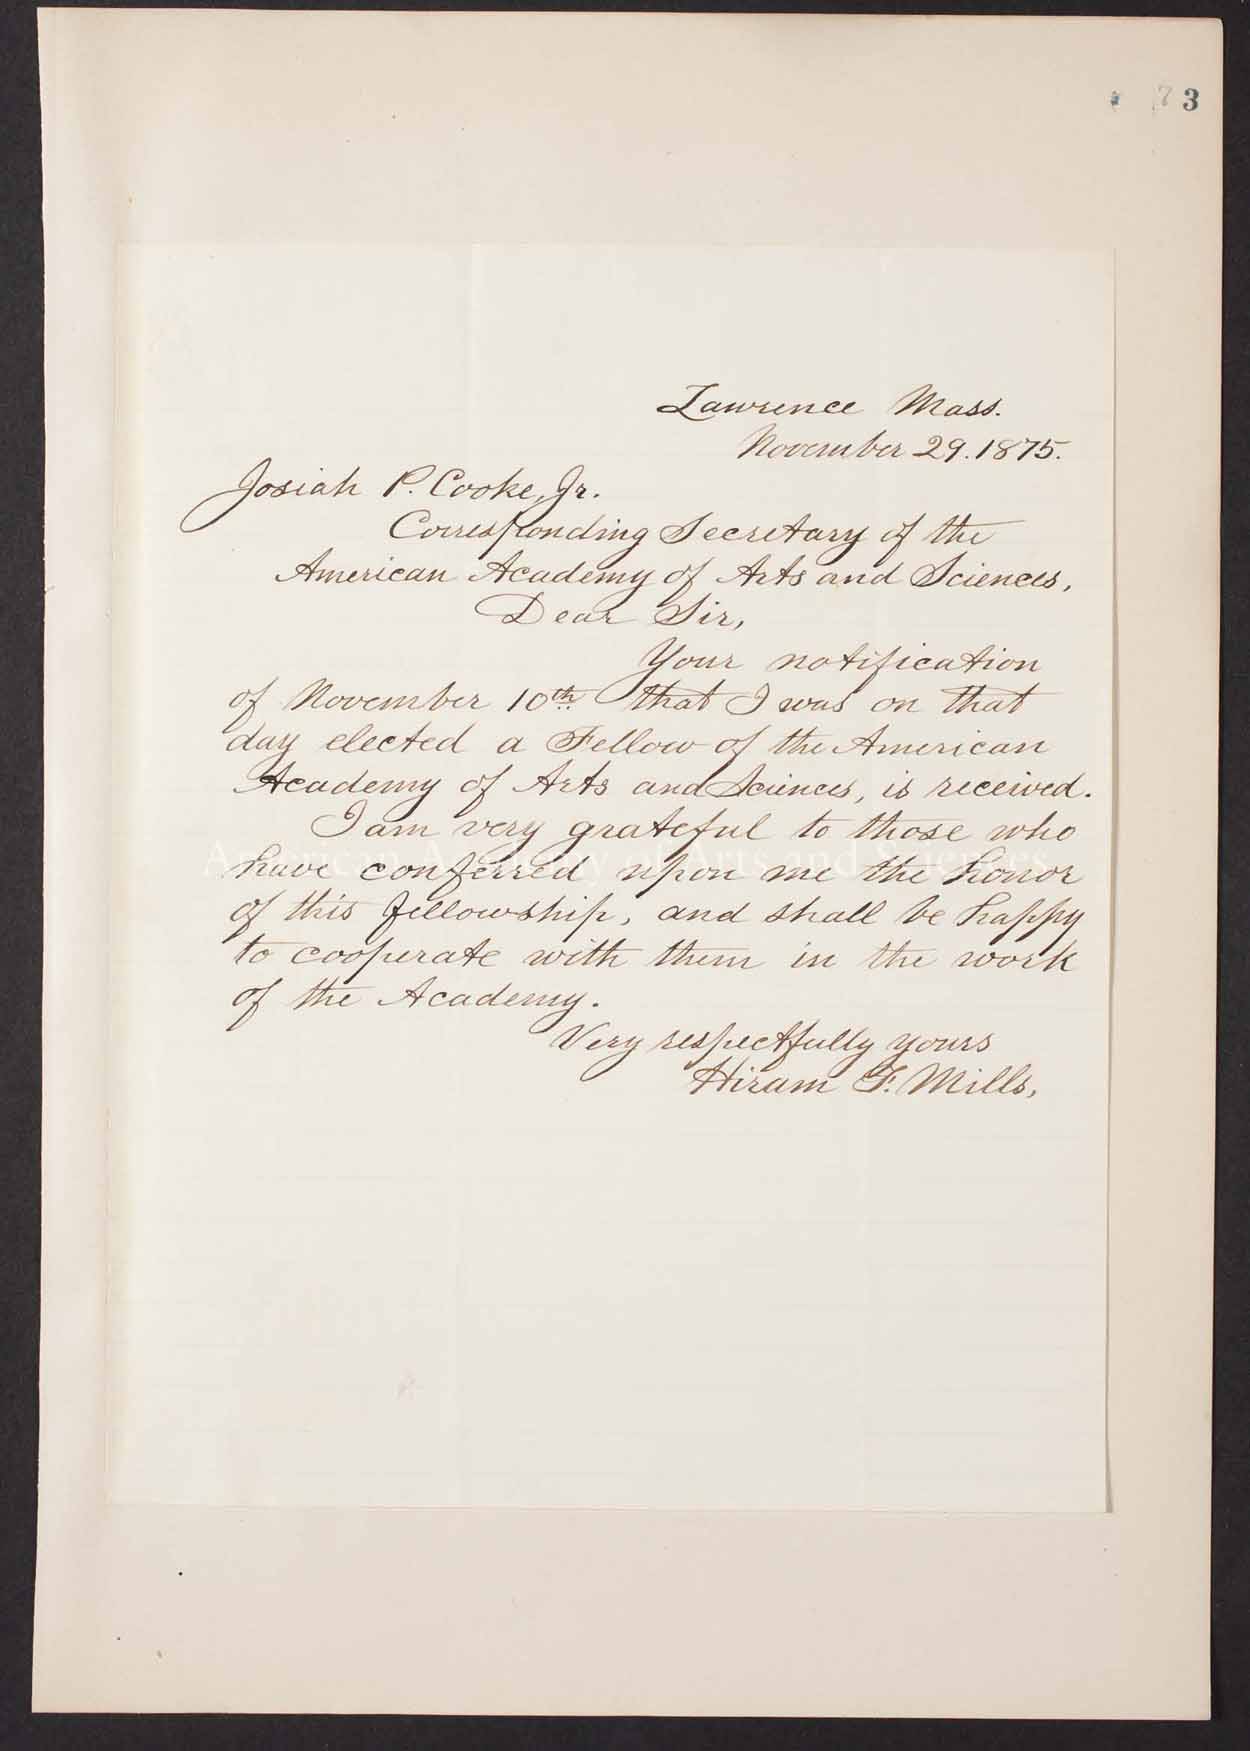 3
Lawrence Mass.
November 29. 1875.
Josiah P. Cooke, Jr.
Corresponding Secretary of the
American Academy of Arts and Sciences,
Dear Sir,
Your notification
of November 10th. that I was on that
day elected a Fellow of the American
Academy of Arts and Sciences, is received.
I am very grateful to those who
American Academy of Arts and Sciences
have conferred upon me the honor
of this fellowship, and shall be happy
to cooperate with them in the work
of the Academy.
Very respectfully yours
Hiram F. Mills,